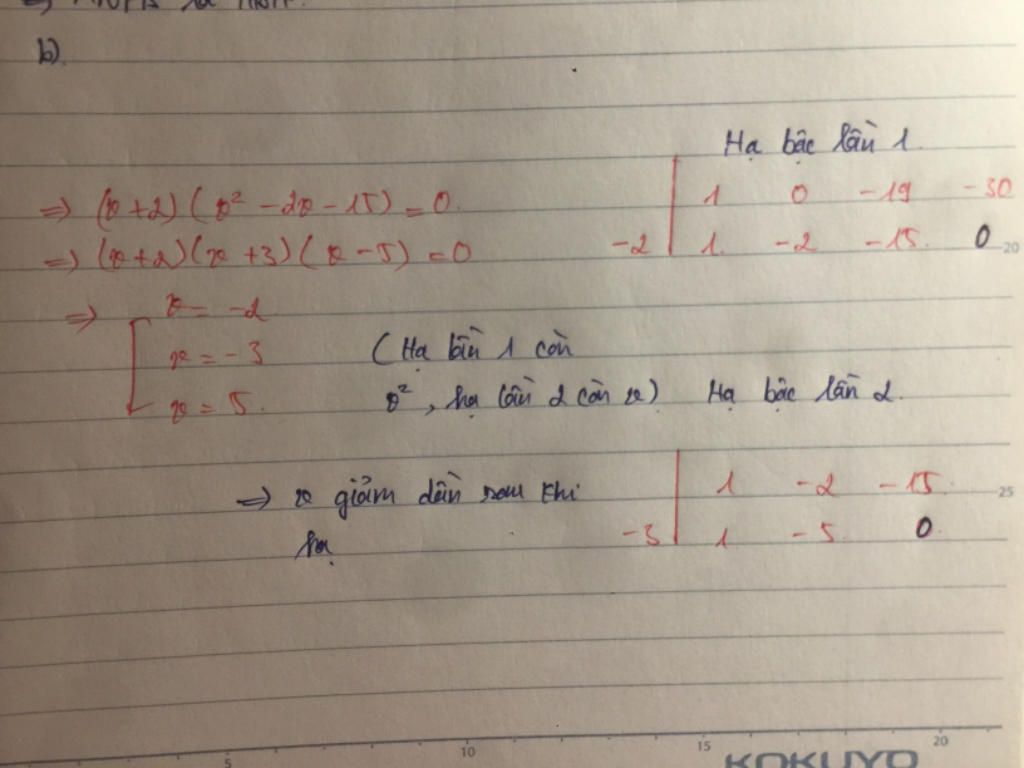 b)
Hạ bậc lần 1
1 0 -19 -30
⇒ (x+2)(x² - 2x - 15) = 0
-2 1 -2 -15 0
⇒ (x+2)(x+3)(x-5) = 0
20
⇒ x = -2
x = -3
(Hạ bần 1 còn
x = 5
x², hạ lần 2 còn x)
Hạ bậc lần 2
1 -2 -15
⇒ x giảm dần sau khi
25
-3 1 -5 0
hạ
5 10 15 20
KOKUYO